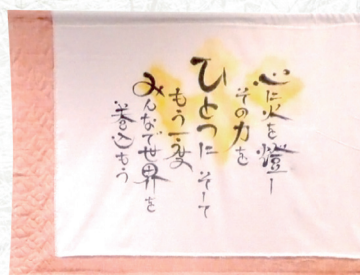 心に火を燈し
その力を
ひとつに そして
もう一度
みんなで世界を
巻込もう